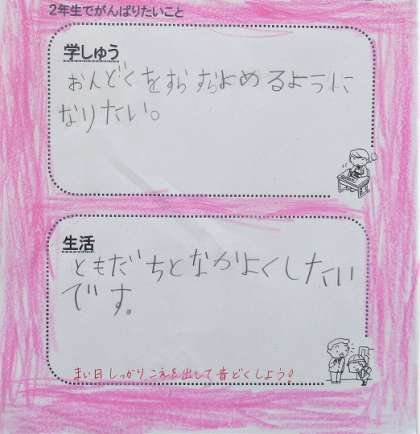 2年生でがんばりたいこと
学しゅう
おんどくをすらすらよめるように
なりたい。
生活
ともだちとなかよくしたい
です。
まい日しっかりこえを出して音どくしよう!